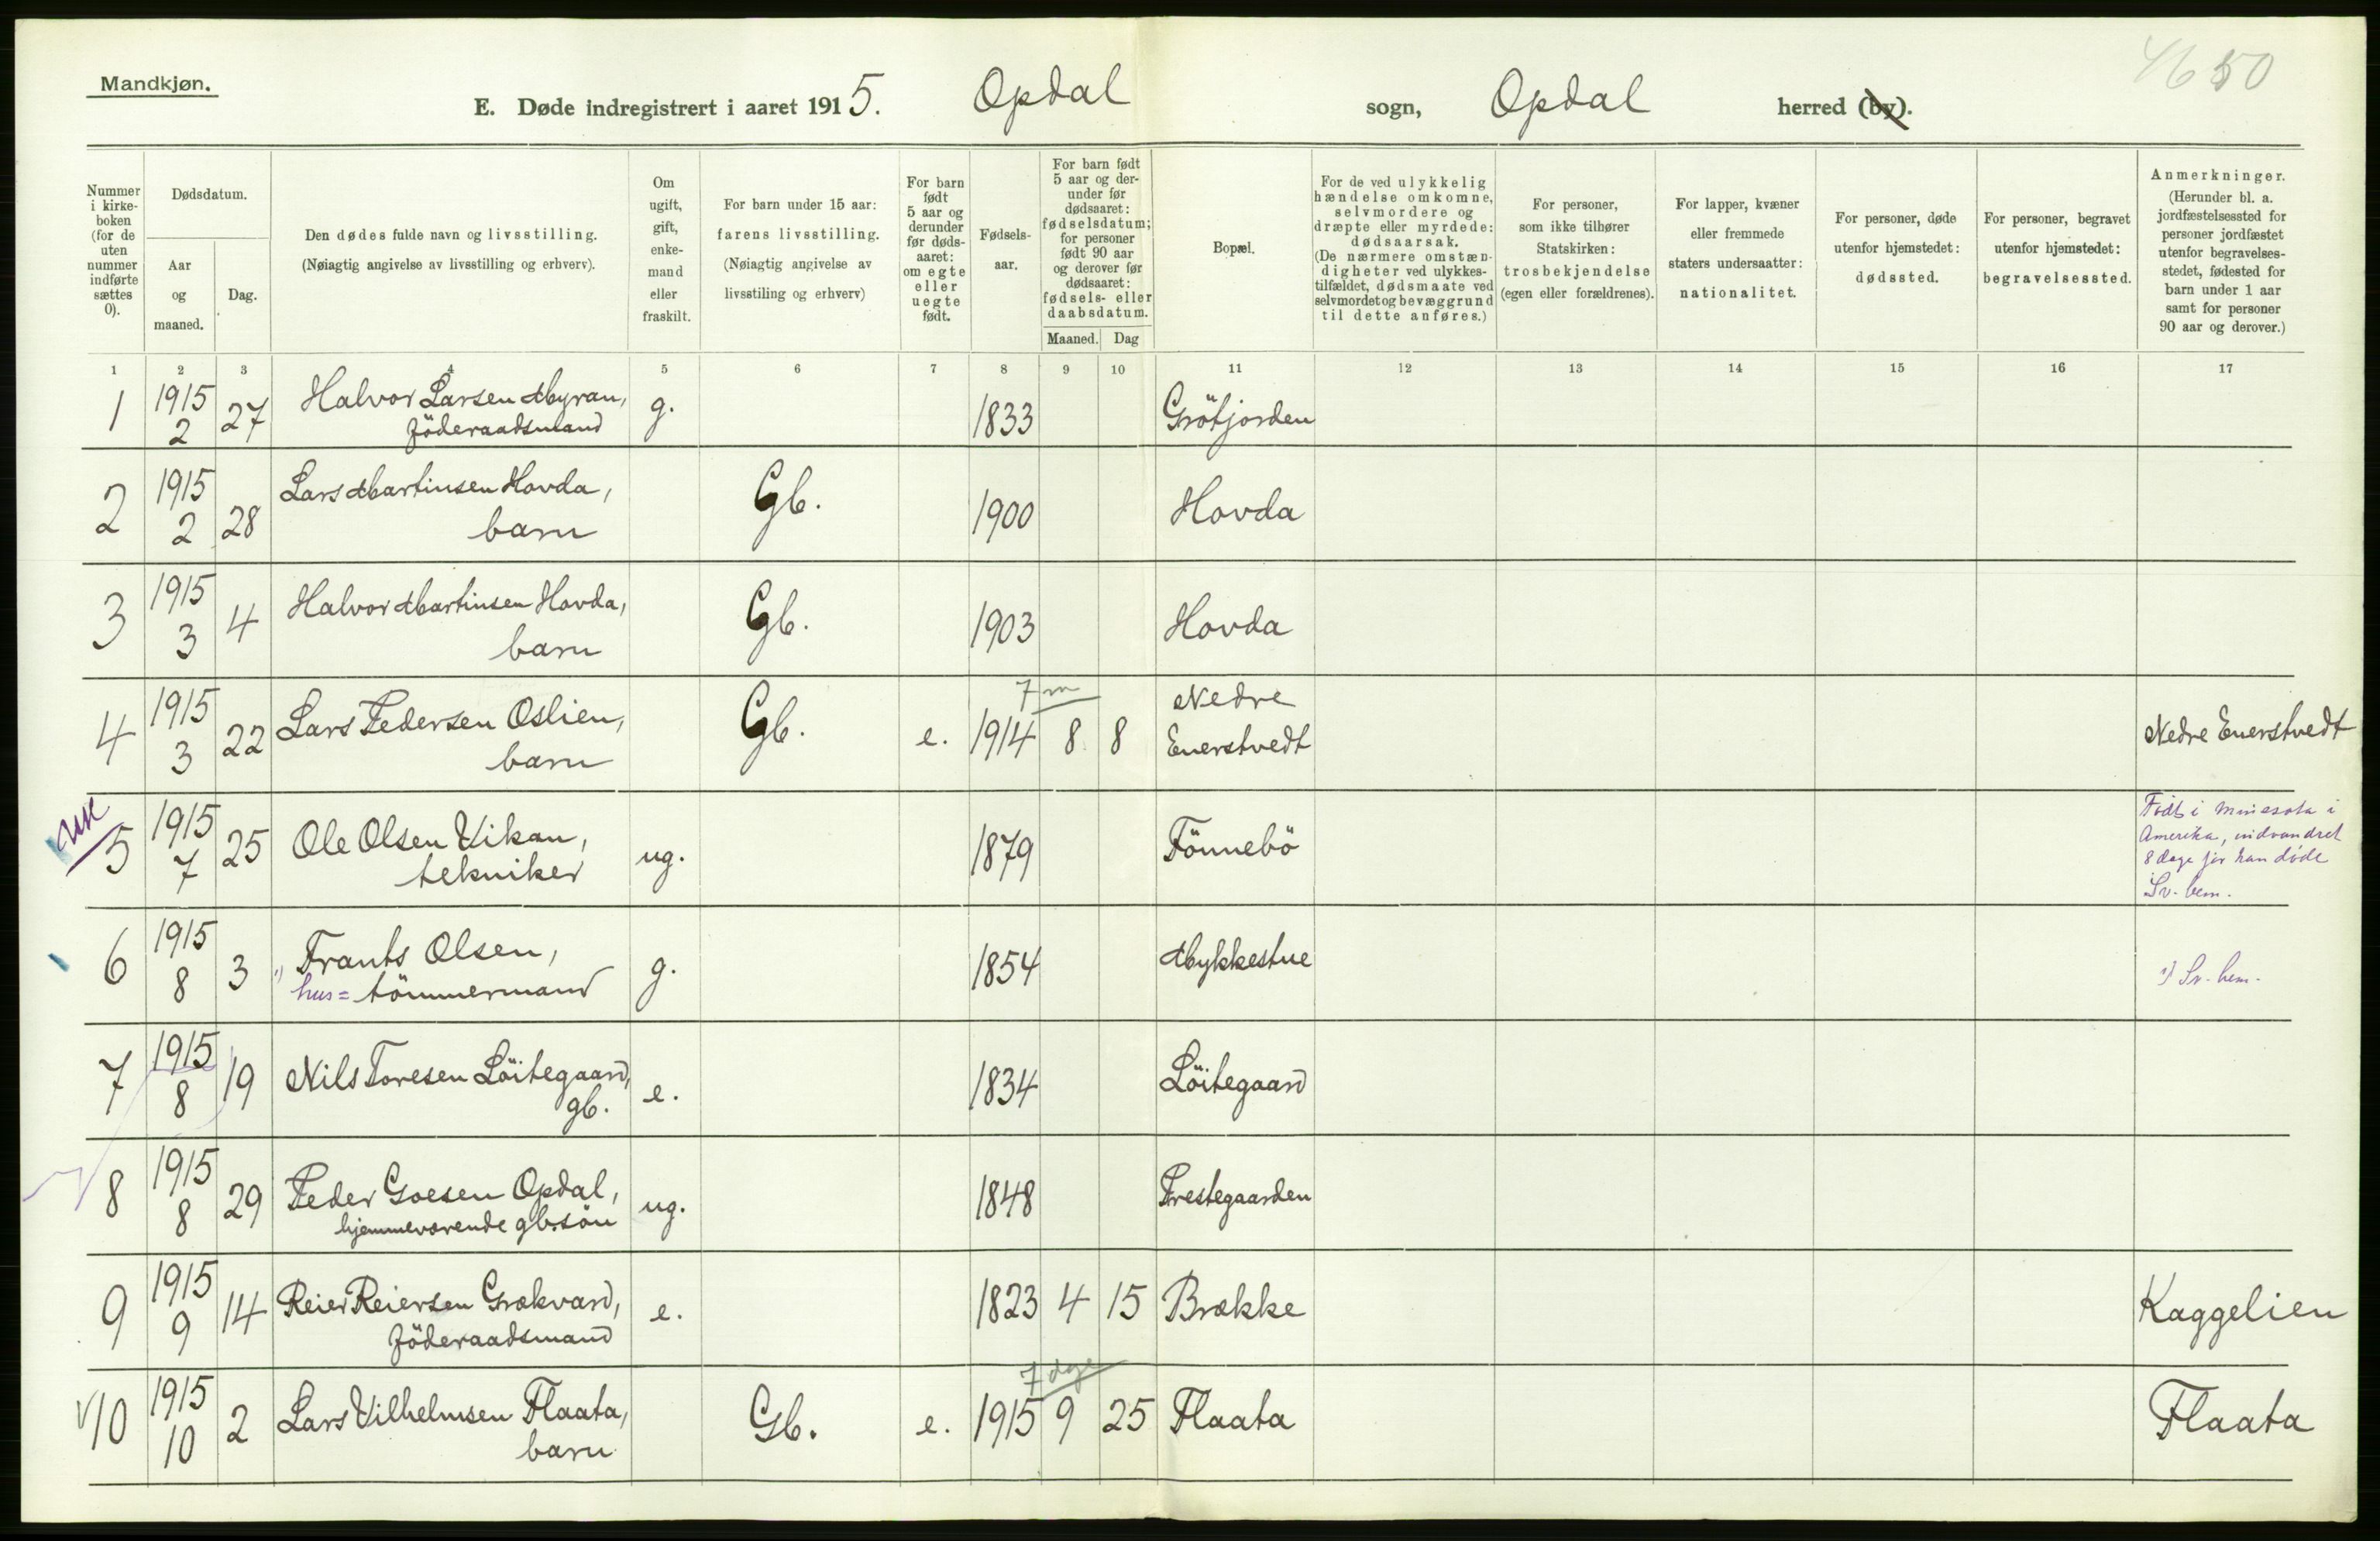 Mandkjøn.
4650
E. Døde indregistrert i aaret 1915. Opdal sogn, Opdal herred (by).
Nummer i kirke-boken (for de uten nummer indførte sættes 0).
Dødsdatum.
Aar og maaned.
Dag.
Den dødes fulde navn og livsstilling.
(Nøiagtig angivelse av livsstilling og erhverv).
Om ugift, gift, enke-mand eller fraskilt.
For barn under 15 aar: farens livsstilling.
(Nøiagtig angivelse av livsstiling og erhverv)
For barn født 5 aar og derunder før døds-aaret: om egte eller uegte født.
Fødsels-aar.
For barn født 5 aar og der-under før dødsaaret: fødselsdatum; for personer født 90 aar og derover før dødsaaret: fødsels- eller daabsdatum.
Maaned. Dag
Bopæl.
For de ved ulykkelig hændelse omkomne, selvmordere og dræpte eller myrdede: dødsaarsak.
(De nærmere omstæn-digheter ved ulykkes-tilfældet, dødsmaate ved selvmordet og bevæggrund til dette anføres.)
For personer, som ikke tilhører Statskirken: trosbekjendelse (egen eller forældrenes).
For lapper, kvæner eller fremmede staters undersaatter: nationalitet.
For personer, døde utenfor hjemstedet: dødssted.
For personer, begravet utenfor hjemstedet: begravelsessted.
Anmerkninger.
(Herunder bl. a. jordfæstelsessted for personer jordfæstet utenfor begravelses-stedet, fødested for barn under 1 aar samt for personer 90 aar og derover.)
1 2 3 4 5 6 7 8 9 10 11 12 13 14 15 16 17
1 1915 2 27 Halvor Larsen Myran, g. 1833 Grötjorden
föderaadsmand
2 1915 2 28 Lars Martinsen Hovda, Gb. 1900 Hovda
barn
3 1915 3 4 Halvor Martinsen Hovda, Gb. 1903 Hovda
barn
7 m
4 1915 3 22 Lars Pedersen Oslien, Gb. e. 1914 8 8 Nedre Enerstvedt Nedre Enerstvedt
barn
5 1915 7 25 Ole Olsen Vikan, ug. 1879 Fönnebö
tekniker
Født i Minesota i
Amerika, indvandret
8 dage før han døde
Sv. hem.
6 1915 8 3 Frants Olsen, g. 1854 Mykkestue 1) Sv. hem.
1) hus= tömmermand
7 1915 8 19 Nils Toresen Löitegaard, e. 1834 Löitegaard
gb.
8 1915 8 29 Peder Goesen Opdal, ug. 1848 Prestegaarden
hjemmeværende gb.sön
9 1915 9 14 Reier Reiersen Grækvard, e. 1823 4 15 Brække Kaggelien
föderaadsmand
7 dge
10 1915 10 2 Lars Vilhelmsen Flaata, Gb. e. 1915 9 25 Flaata Flaata
barn